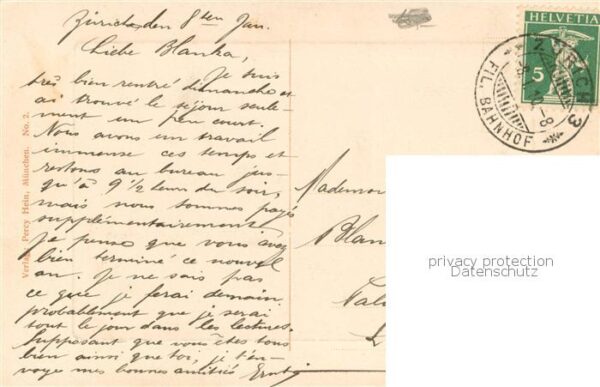 Zürich, den 8ten Jan.
Liebe Blanka,
Je suis
très bien rentré dimanche et
ai trouvé le séjour seule-
ment un peu court.
Nous avons un travail
immense ces temps et
restons au bureau jus-
qu'à 9 1/2 heures du soir,
mais nous sommes payé
supplémentairement.
Je pense que vous avez
bien terminé ce nouvel
an. Je ne sais pas
ce que je ferai demain
probablement que je serai
tout le jour dans les lectures.
Supposant que vous êtes tous
bien ainsi que toi, je t'en-
voyes mes bonnes amitiés Ernst
Verlag: Percy Hein, München. No. 2.
HELVETIA
5
ZÜRICH 3
FIL. BAHNHOF
-8
Mademoi
Blan
privacy protection
Datenschutz